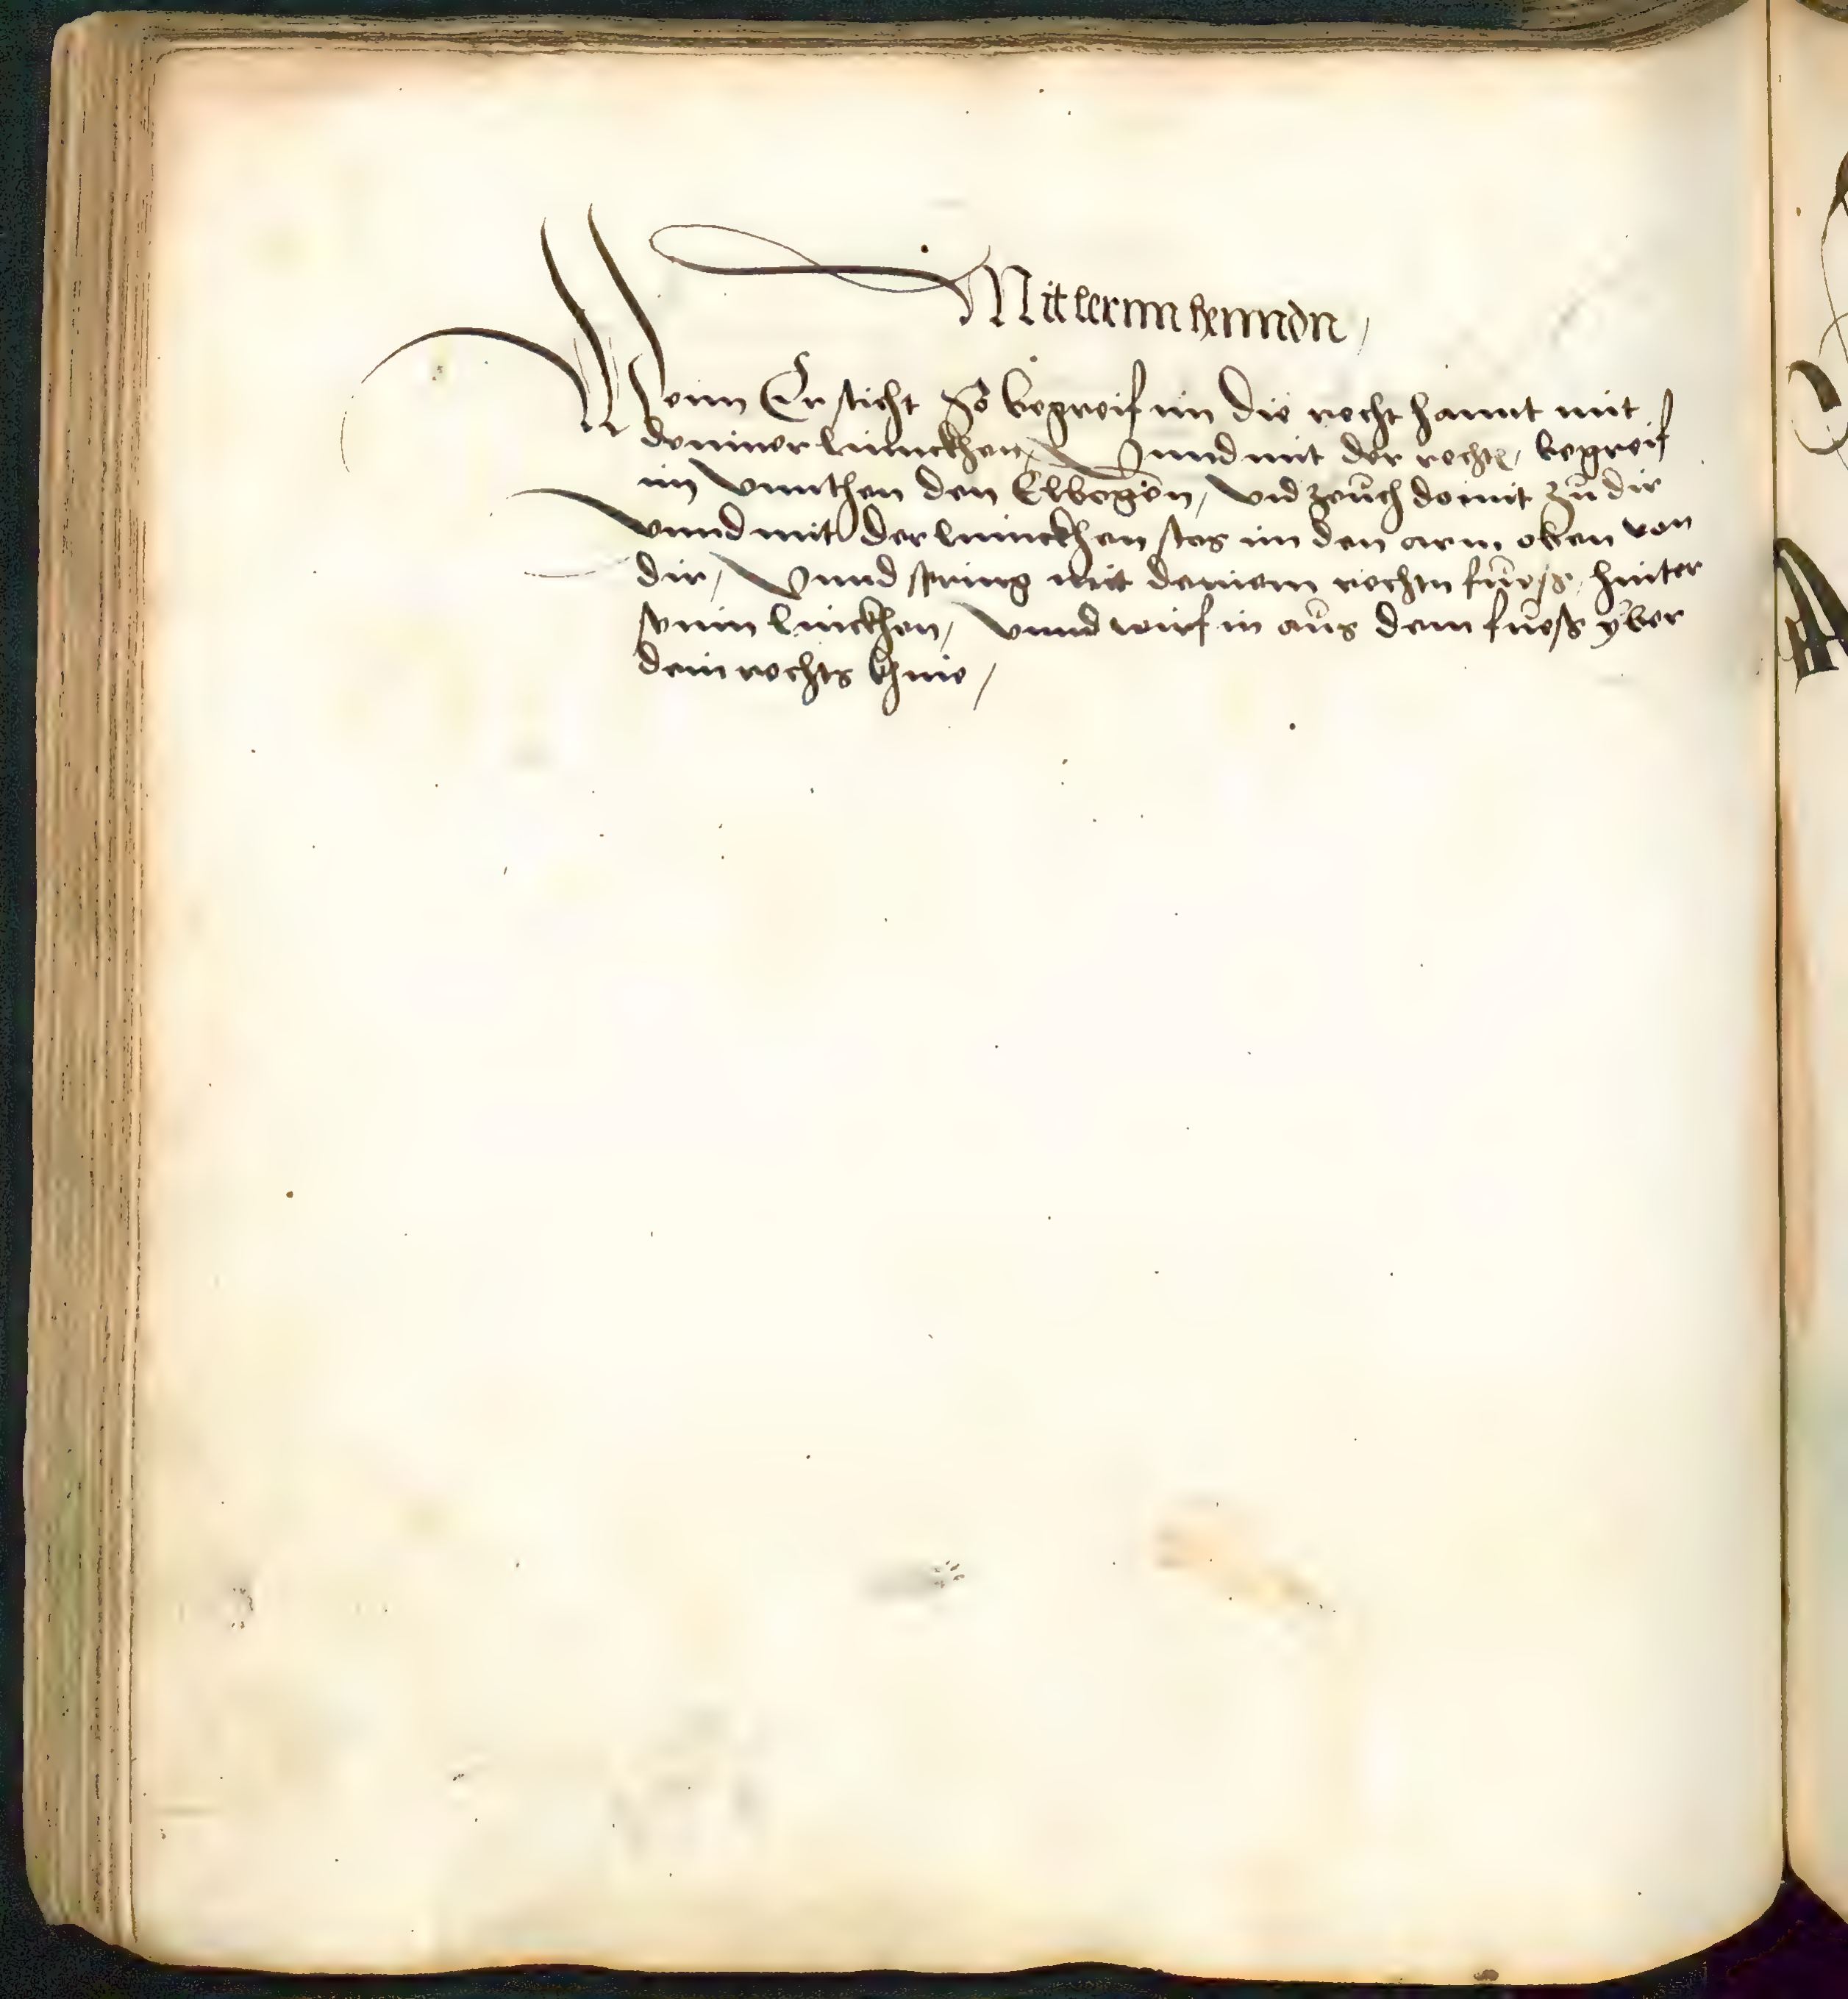 Mit lernn henndn /
Wenn Er sticht So begreif im die recht hannt mit
deniner linnckhen / Vnnd mit der rechtn / begreif
im vnnthen den Elbogen / vnd zeuch domit zu dir
vnnd mit der linnckhen stos im den arm oben von
dir / Vnnd spring mit deinem rechtn fuess hinter
senin linckhen / vnnd wirf in aus dem fuess yber
dein rechts khnie /